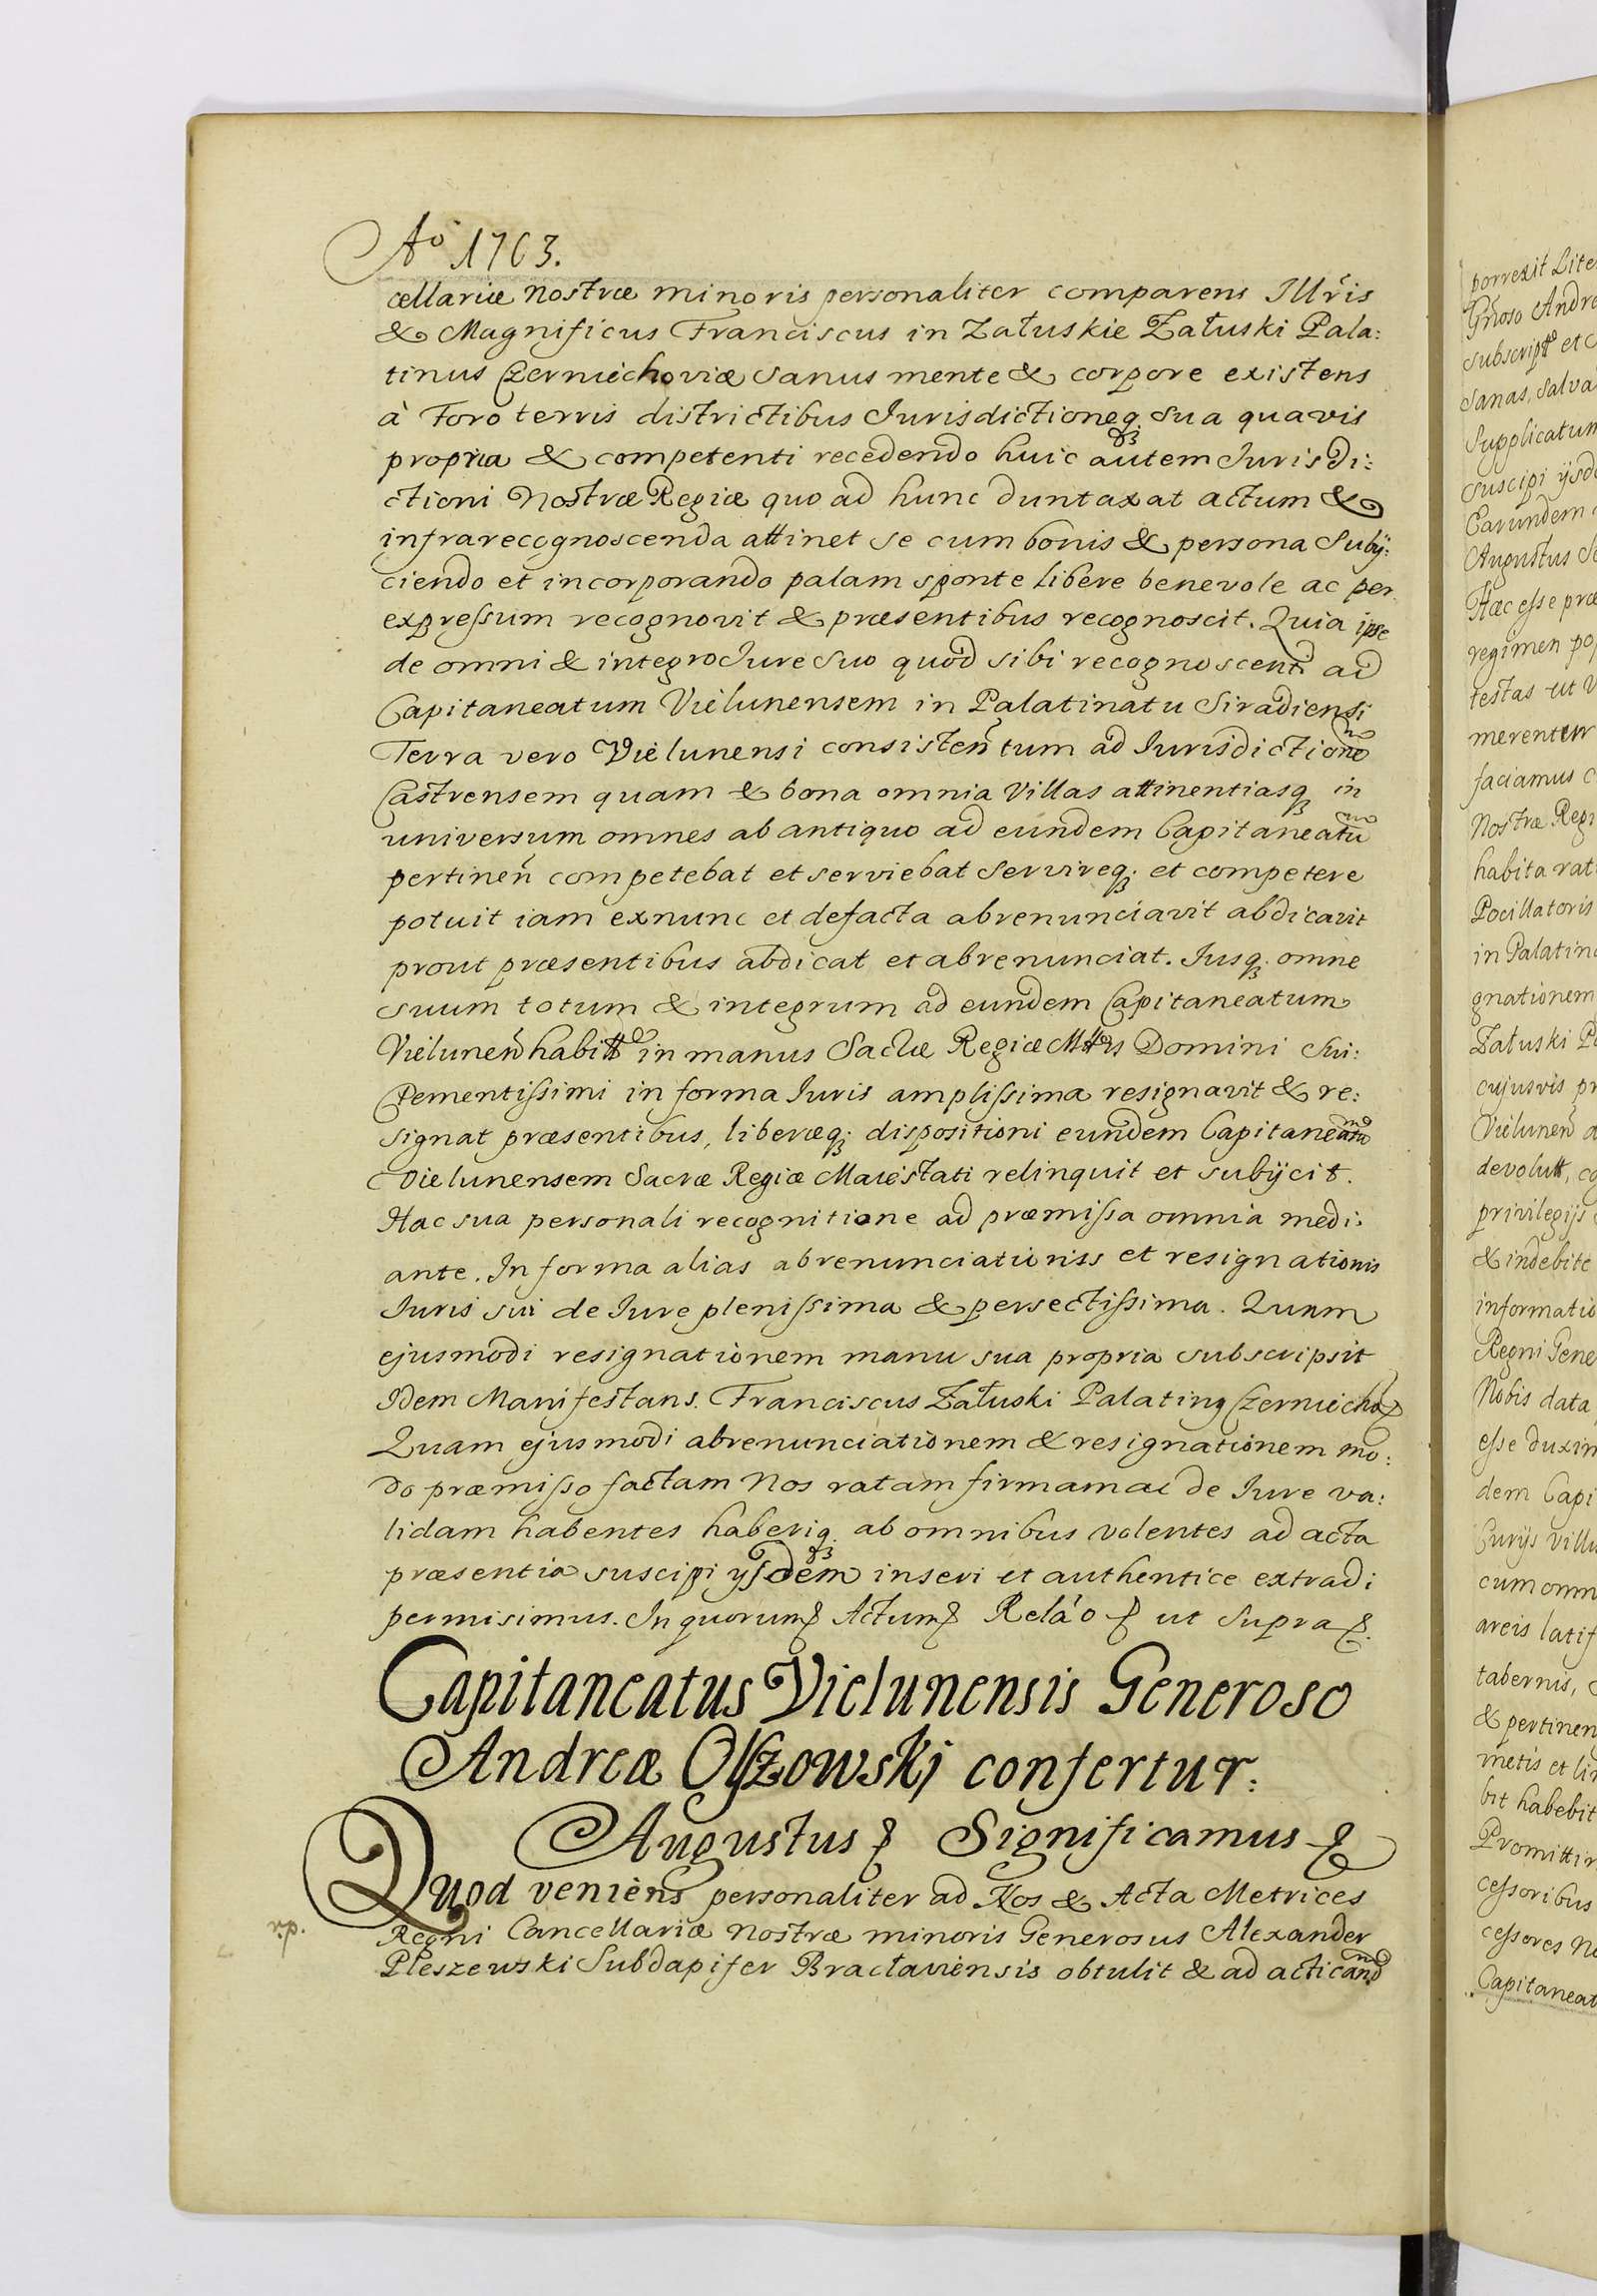 Aº 1703.
cellariæ Nostræ minoris personaliter comparens Illris
& Magnificus Franciscus in Załuskie Załuski Pala:
tinus Czerniechoviæ sanus mente & corpore existens
à Foro terris districtibus Jurisdictioneq3 sua quavis
propria & competenti recedendo huic autem Jurisdi:
ctioni Nostræ Regiæ quo ad hunc duntaxat actum &
infrarecognoscenda attinet se cum bonis & persona subij:
ciendo et incorporando palam sponte libere benevole ac per
expressum recognovit & præsentibus recognoscit. Quia ipse
de omni & integro Jure suo quod sibi recognoscenti ad
Capitaneatum Vielunensem in Palatinatu Siradiensi
Terra vero Vielunensi consisten̄tum ad Jurisdictionem
Castrensem quam & bona omnia Villas attinentiasq3 in
universum omnes ab antiquo ad eundem Capitaneatum
pertinen̄ competebat et serviebat servireq3 et competere
potuit iam exnunc et defacta abrenunciavit abdicavit
prout præsentibus abdicat et abrenunciat. Jusq3 omne
suum totum & integrum ad eundem Capitaneatum
Vielunen̄ habitt in manus Sacræ Regiæ Mttis Domini sui:
Clementissimi in forma Juris amplissima resignavit & re:
signat præsentibus, liberæq3 dispositioni eundem Capitaneatum
Vielunensem Sacræ Regiæ Maiestati relinquit et subijcit.
Hac sua personali recognitione ad præmissa omnia medi:
ante. In forma alias abrenunciationis et resignationis
Juris sui de Jure plenissima & perfectissima. Quam
ejusmodi resignationem manu sua propria subscripsit
Idem Manifestans. Franciscus Załuski Palatinq Czerniecho
Quam ejusmodi abrenunciationem & resignationem mo:
do præmisso factam Nos ratam firmam ac de Jure va:
lidam habentes haberiq3 ab omnibus volentes ad acta
præsentia suscipi ijsdem inseri et authentice extradi
permisimus. In quorum & Actum & Reláo & ut supra &.
Capitaneatus Vielunensis Generoso
Andreæ Olszowskj confertur:
Augustus & Significamus &
Quod veniens personaliter ad Nos & Acta Metrices
r.p.
Regni Cancellariæ Nostræ minoris Generosus Alexander
Pleszewski Subdapifer Bractaviensis obtulit & ad acticand
porrexit Lite
Gnoso Andre
subscript et
sanas, salva
Supplicatum
suscipi ijsd
Earundem
Augustus
Hæc esse præ
regimen
testas ut
merentur
faciamus
Nostræ Regi
habita rat
Pocillatoris
in Palatin
gnationem
Załuski
cujusvis pr
Vielunen̄
devolutt,
privilegijs
& indebite
informatio
Regni Gene
Nobis data
esse duxim
dem Capi
Curijs vill
cum omn
areis latif
tabernis,
& pertinen
metis et li
bit habebit
Promittim
cessoribus
cessores
Capitaneat